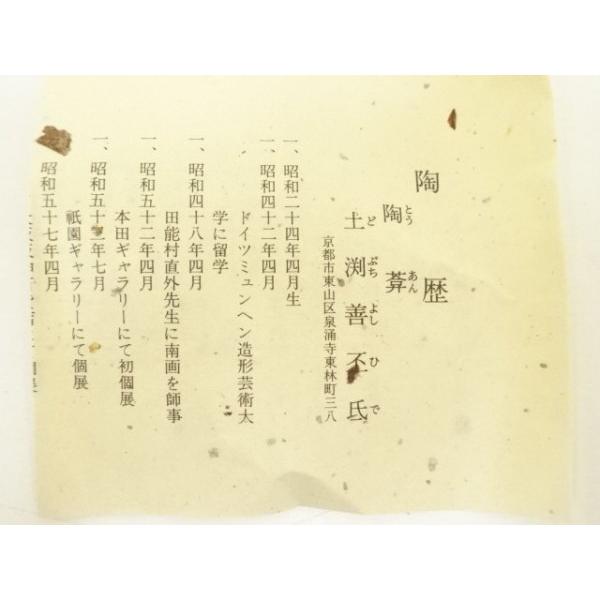 陶歴
陶葊
とうあん
土渕善丕氏
どぶちよしひで
京都市東山区泉涌寺東林町三八
一、昭和二十四年四月生
一、昭和四十二年四月
ドイツミュンヘン造形芸術大
学に留学
一、昭和四十八年四月
田能村直外先生に南画を師事
一、昭和五十二年四月
本田ギャラリーにて初個展
一、昭和五十三年七月
祇園ギャラリーにて個展
昭和五十七年四月